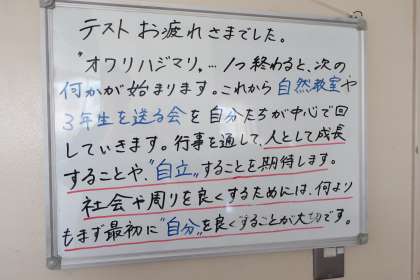 テスト お疲れさまでした。
"オワリハジマリ"… 1つ終わると、次の
何かが始まります。これから自然教室や
3年生を送る会を自分たちが中心で回
していきます。行事を通して、人として成長
することや、"自立"することを期待します。
社会や周りを良くするためには、何より
もまず最初に"自分"を良くすることが大切です。